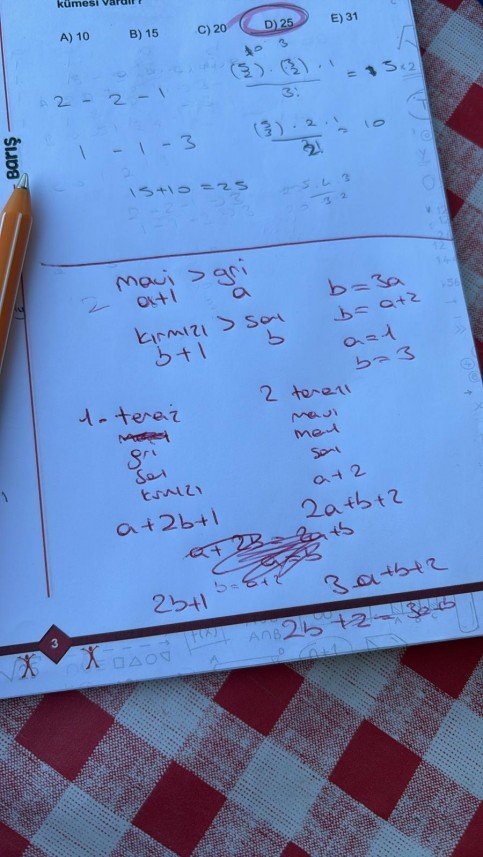 kümesi vardır?
A) 10 B) 15 C) 20 D) 25 E) 31
10 3
2 - 2 - 1 (5/2) . (3/2) . 1 / 3! = 15
1 - 1 - 3 (5/3) . 2 . 1 / 2! = 10
15+10 = 25
BARIŞ
2 mavi > gri
a+1 a
b = 3a
b = a+2
kırmızı > sarı
b+1 b
a = 1
b = 3
1. terazi
gri
sarı
kırmızı
a+2b+1
2 terazi
mavi
mavi
sarı
a+2
2a+b+2
a + 2b = 2a+b
b = a+2
2b+1
3a+b+2
2b+2 = 3a+b
3